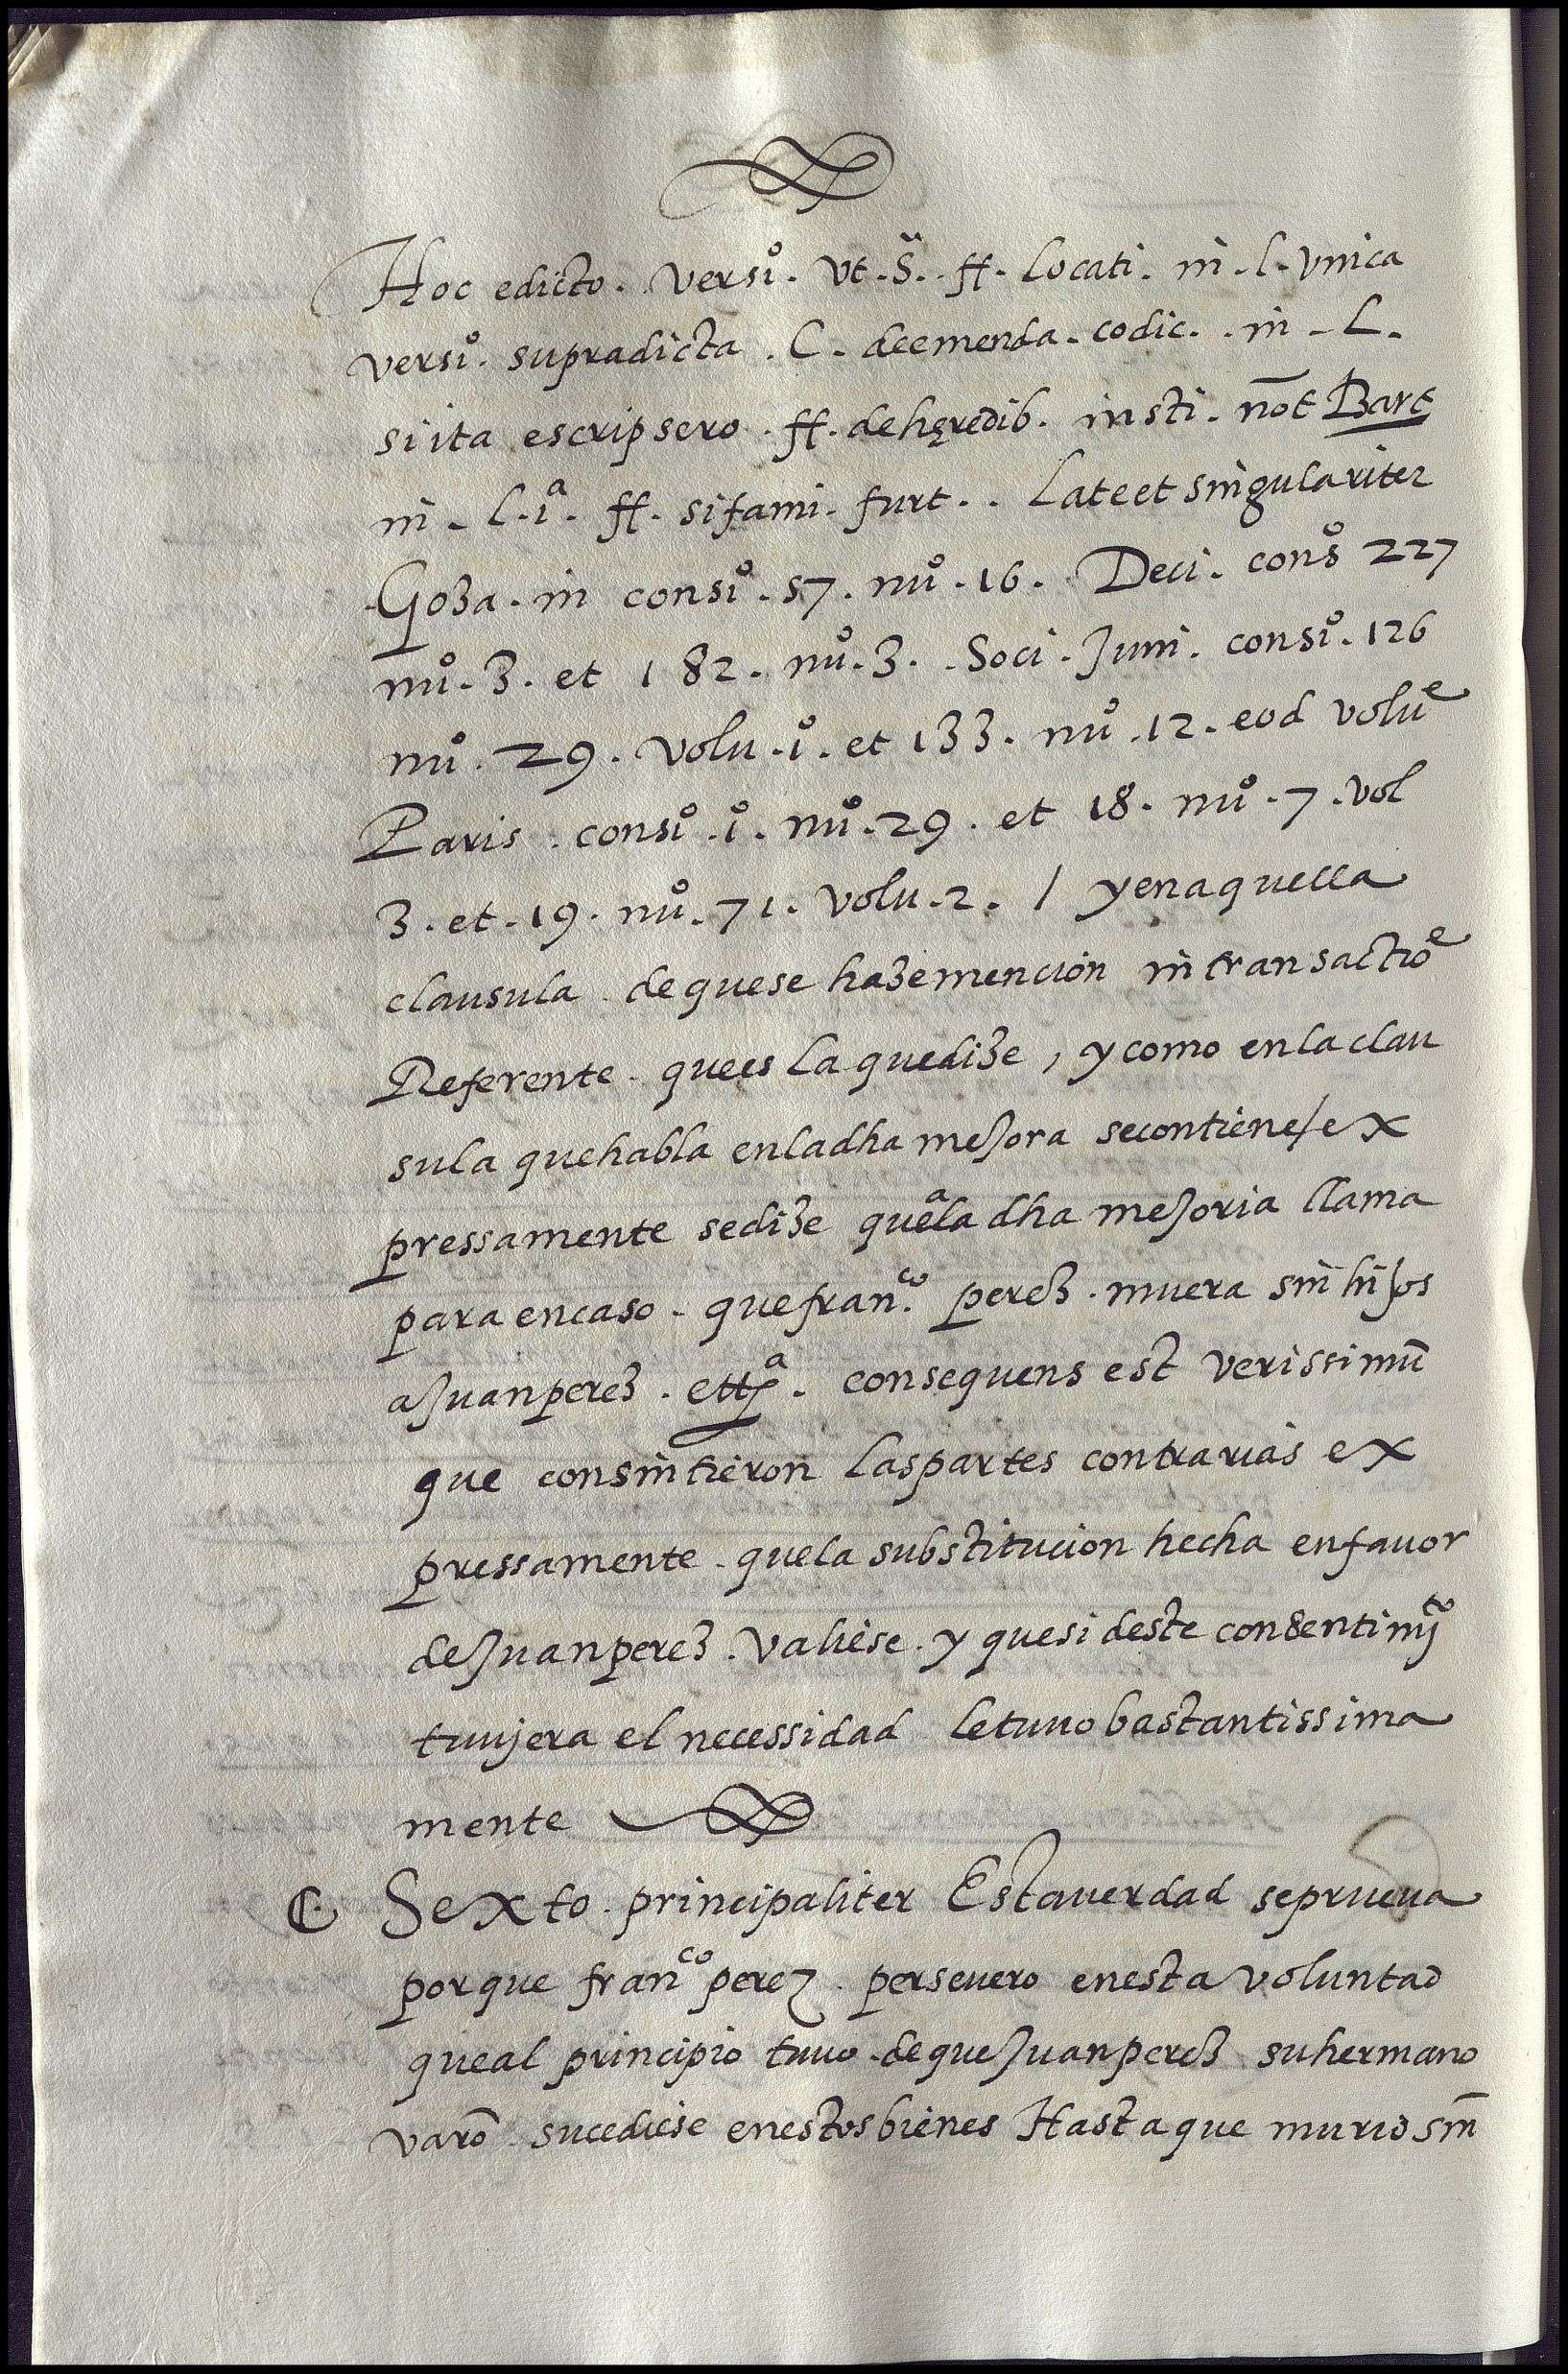 Hoc edicto. versuº. vt. Sª. ff. Locati. in. l. vnica
versuº. supradicta. C. deemenda. codic. in. L.
siita escripsero. ff. dehęredib. insti. nōt Bart
in. l. iª. ff. sifami. furt.. Lateet singulariter
Goza. in consiº. 57. nuº. 16. Deci. consº 227
nuº. 3. et 182. nuº. 3. Soci. Juni. consiº. 126
nuº. 29. volu. iº. et 133. nuº. 12. eod volūe
Paris. consiº. iº. nuº. 29. et 18. nuº. 7. vol
3. et. 19. nuº. 71. volu. 2. / yenaquella
clausula. dequese hazemencion intransactioē
Referente. quees laquedize, ycomo enlaclau
sula quehabla enladha mejora secontiene/ex
pressamente sedize queªla dha mejoria llama
para encaso. quefranco. perez. muera sin hijos
aJuanperez. ettª. consequens est verissimū
que consintieron laspartes contrarias ex
pressamente. quela substitucion hecha enfauor
deJuanperez. valiese. y quesi deste consentimyto
tuujera el necessidad letuuo bastantissima
mente
C. Sexto. principaliter Estauerdad seprueua
porque franco perez. perseuero enesta voluntad
queal principio tuuo. dequeJuanperez suhermano
varō sucediese enestosbienes Hastaque murio sin